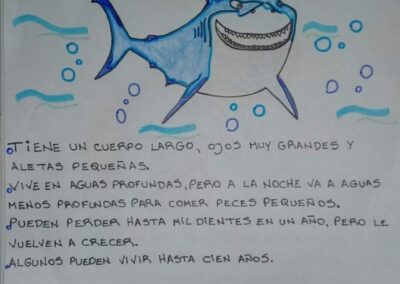 TIENE UN CUERPO LARGO, OJOS MUY GRANDES Y
ALETAS PEQUEÑAS.
VIVE EN AGUAS PROFUNDAS, PERO A LA NOCHE VA A AGUAS
MENOS PROFUNDAS PARA COMER PECES PEQUEÑOS.
PUEDEN PERDER HASTA MIL DIENTES EN UN AÑO, PERO LE
VUELVEN A CRECER.
ALGUNOS PUEDEN VIVIR HASTA CIEN AÑOS.